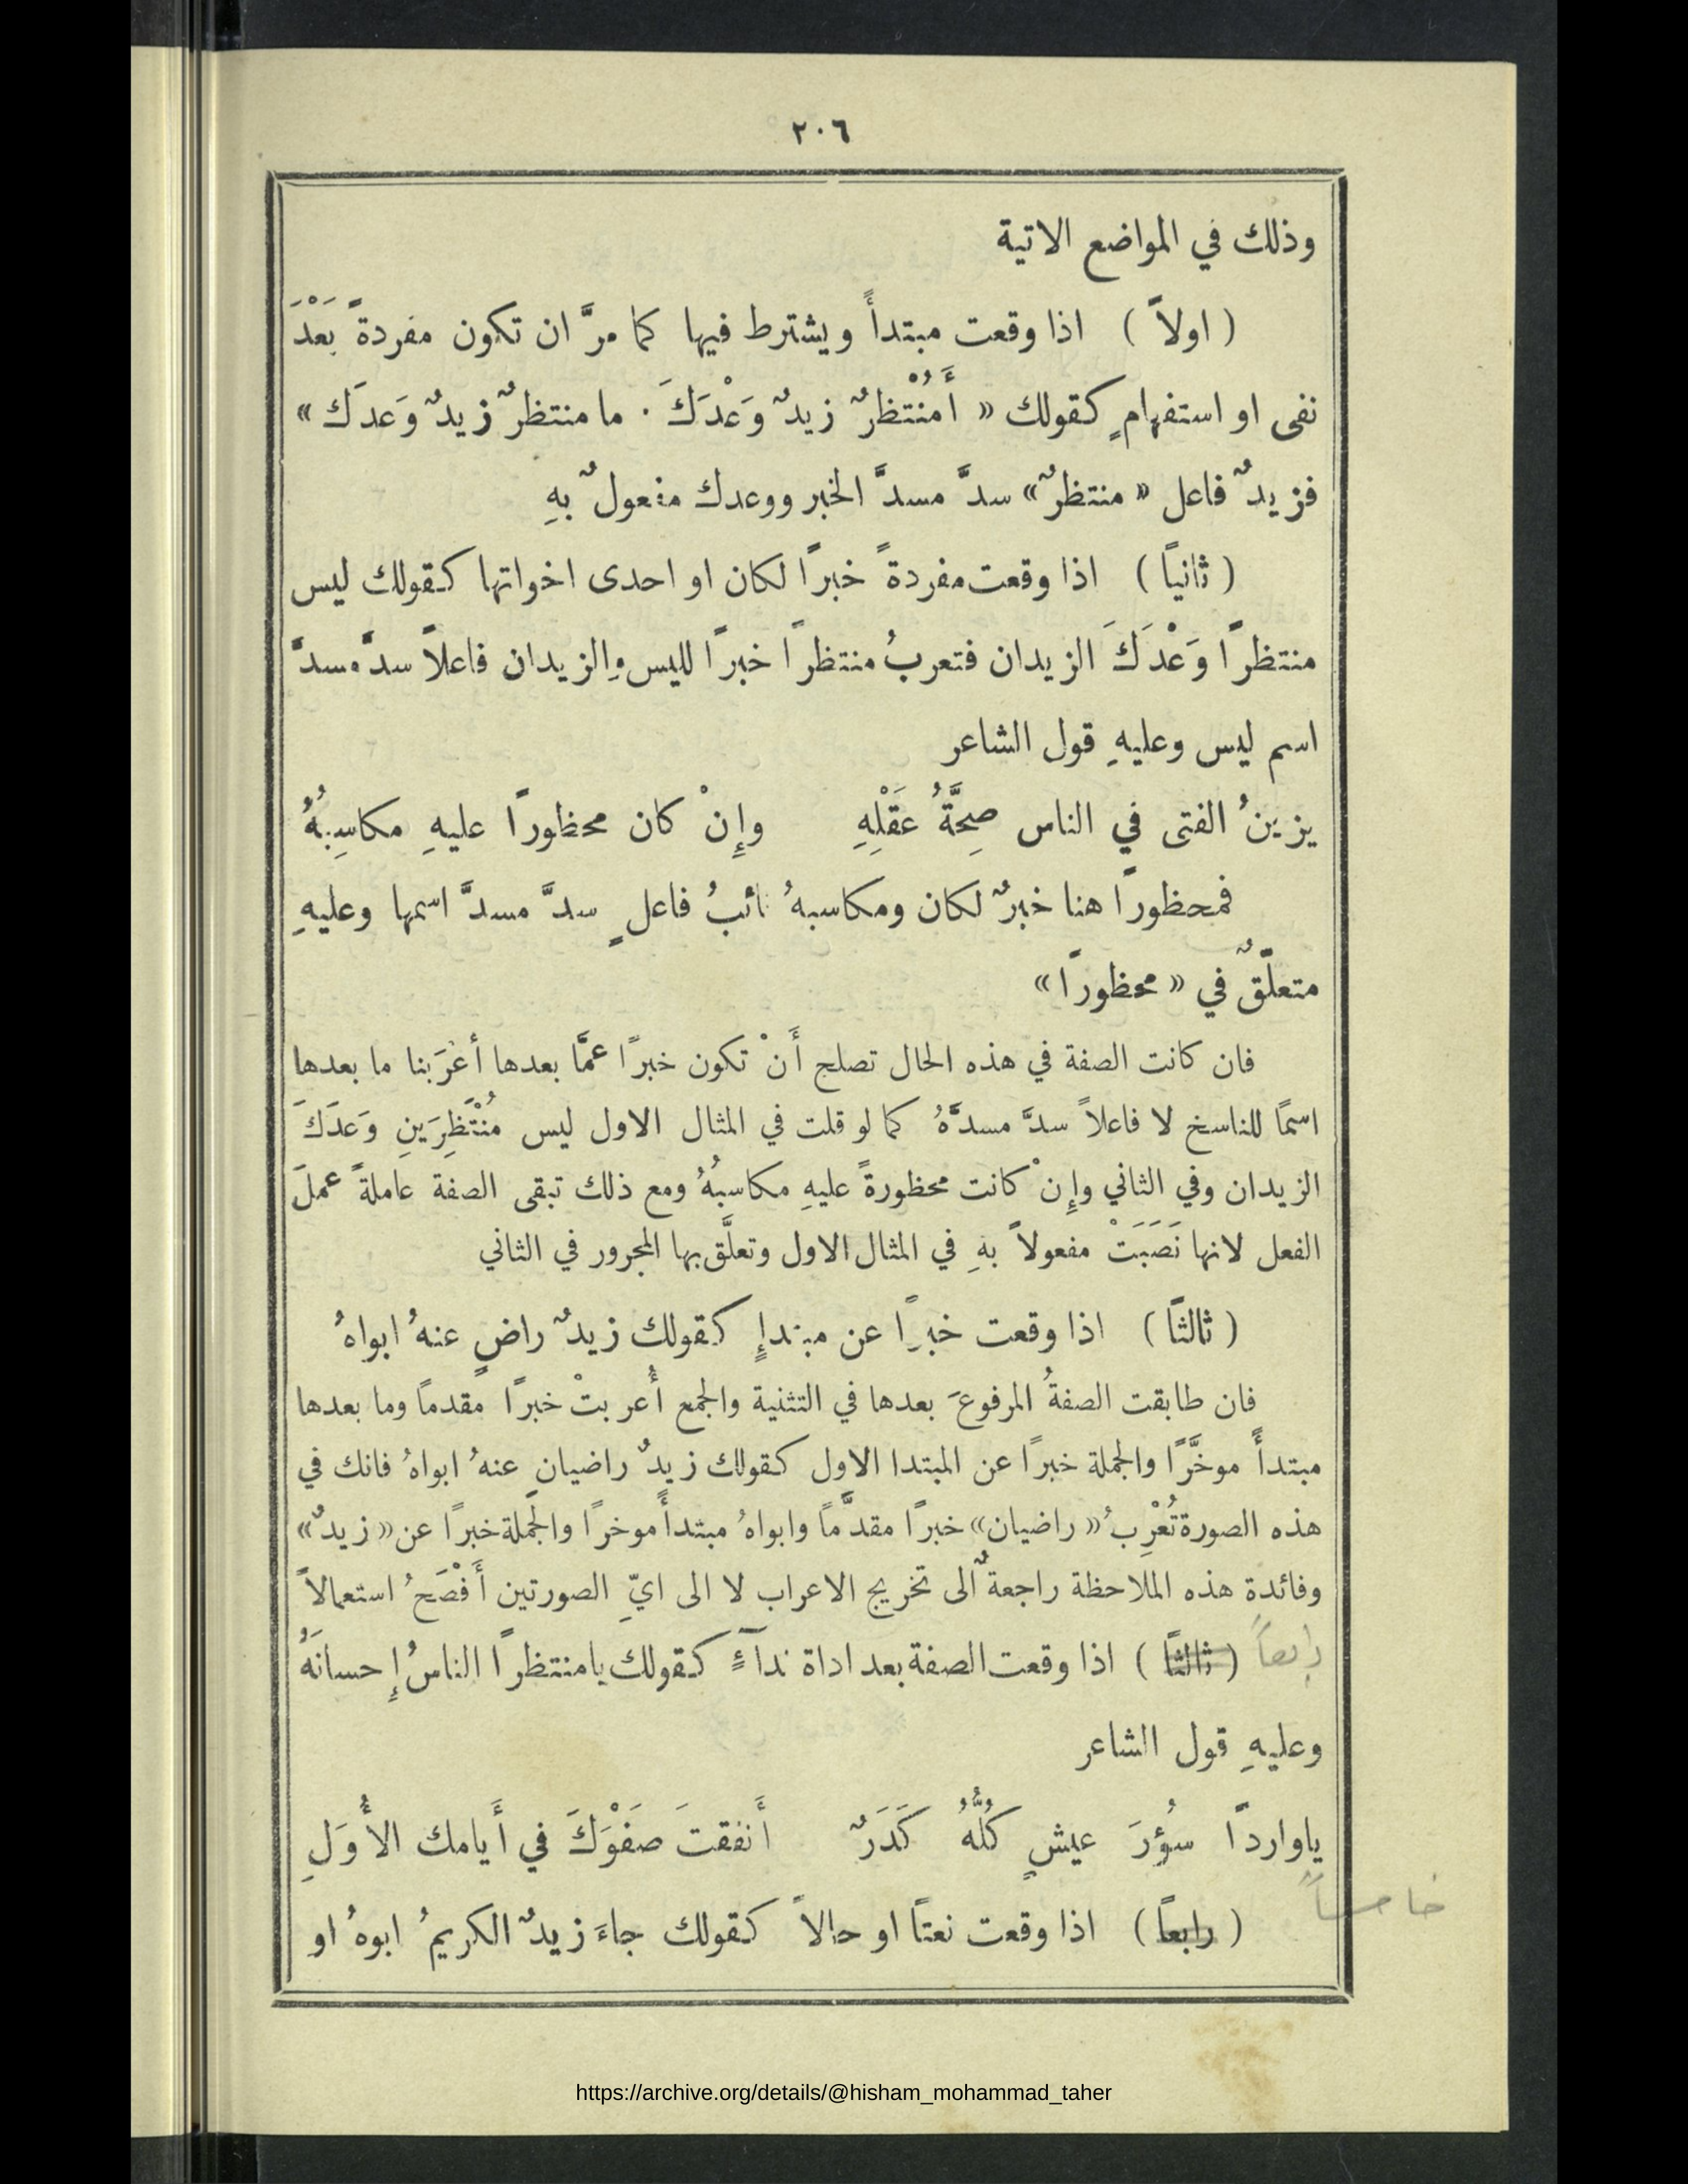 ٢٠٦
وذلك في المواضع الاتية
( اولاً ) اذا وقعت مبتدأً ويشترط فيها كما مرَّ ان تكون مفردةً بَعْدَ
نفى او استفهامٍ كقولك « أَمُنْتْظرٌ زيدٌ وَعْدَكَ ٠ ما منتظرٌ زيدٌ وَعدَك »
فزيدٌ فاعل « منتظرٌ » سدَّ مسدَّ الخبر ووعدك مفعولٌ بهِ
( ثانياً ) اذا وقعت مفردةً خبراً لكان او احدى اخواتها كقولك ليس
منتظراً وَعْدَكَ الزيدان فتعربُ منتظراً خبراً لليس والزيدان فاعلاً سدَّ مسدَّ
اسم ليس وعليهِ قول الشاعر
يزينُ الفتى في الناس صِحَّةُ عَقْلِهِ وإِنْ كان محظوراً عليهِ مكاسِبُهُ
فمحظوراً هنا خبرٌ لكان ومكاسبهُ نائبُ فاعلٍ سدَّ مسدَّ اسمها وعليهِ
متعلّقٌ في « محظوراً »
فان كانت الصفة في هذه الحال تصلح أَنْ تكون خبراً عمَّا بعدها أعْرَبنا ما بعدها
اسمًا للناسخ لا فاعلاً سدَّ مسدَّهُ كما لو قلت في المثال الاول ليس مُنْتَظِرَينِ وَعدَكَ
الزيدان وفي الثاني وإِنْ كانت محظورةً عليهِ مكاسبُهُ ومع ذلك تبقى الصفة عاملةً عملَ
الفعل لانها نَصَبَتْ مفعولاً بهِ في المثال الاول وتعلَّق بها المجرور في الثاني
( ثالثاً ) اذا وقعت خبراً عن مبتدإٍ كقولك زيدٌ راضٍ عنهُ ابواهُ
فان طابقت الصفةُ المرفوعَ بعدها في التثنية والجمع أُعربتْ خبراً مقدماً وما بعدها
مبتدأً موخَّرًا والجملة خبراً عن المبتدا الاول كقولك زيدٌ راضيانِ عنهُ ابواهُ فانك في
هذه الصورة تُعْرِبُ « راضيان » خبراً مقدَّماً وابواهُ مبتدأً موخراً والجملة خبراً عن « زيدٌ »
وفائدة هذه الملاحظة راجعةٌ الى تخريج الاعراب لا الى ايِّ الصورتين أَفْصَحُ استعمالاً
رابعاً ( ثالثاً ) اذا وقعت الصفة بعد اداة نداءٍ كقولك يا منتظراً الناسُ إِحسانَهُ
وعليهِ قول الشاعر
ياوارداً سُؤرَ عيشٍ كُلُّهُ كَدَرٌ أَنفقتَ صَفْوَكَ في أَيامك الأُوَلِ
خامساً ( رابعاً ) اذا وقعت نعتاً او حالاً كقولك جاءَ زيدٌ الكريمُ ابوهُ او
https://archive.org/details/@hisham_mohammad_taher